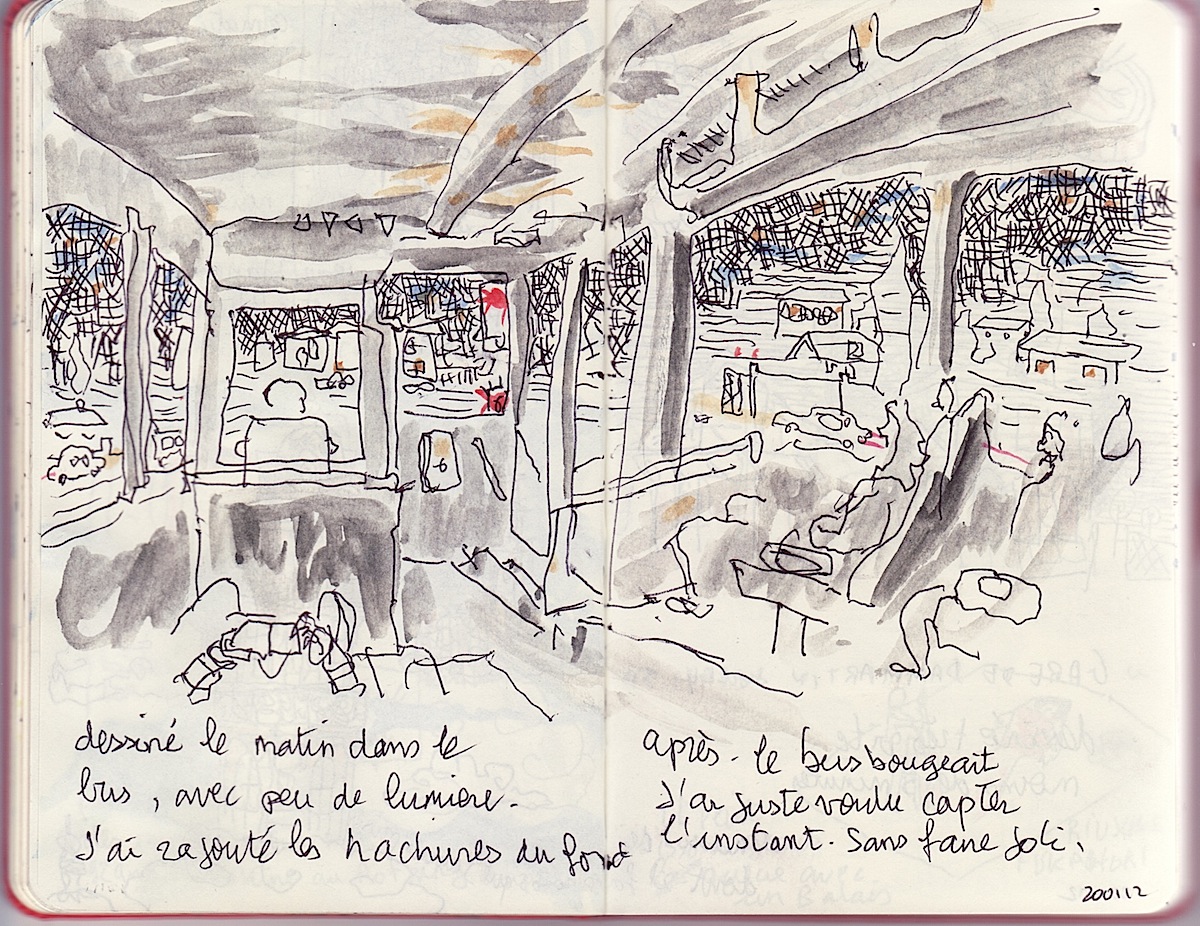 dessiné le matin dans le
bus, avec peu de lumière.
J'ai rajouté les hachures du fond
après. le bus bougeait
J'ai juste voulu capter
l'instant. Sans faire joli.
200112